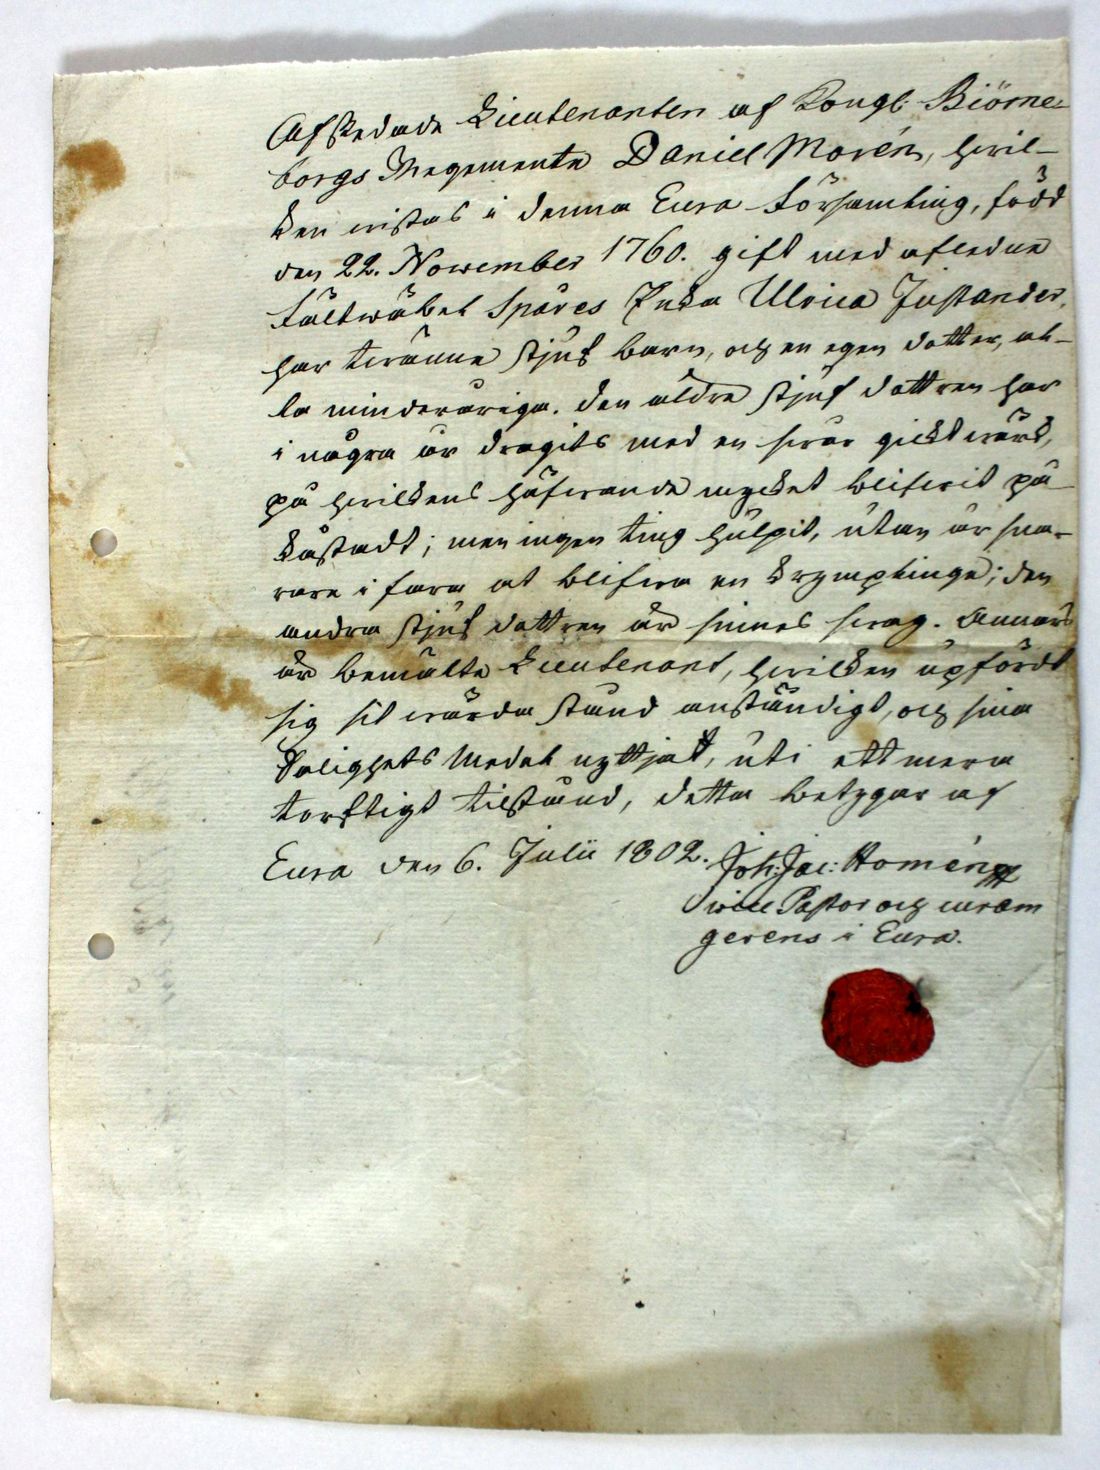 Afskedade Lieutenanten af Kongl: Biörne-
borgs Regemente Daniel Morén, hvil-
ken vistas i denna Eura Församling, född
den 22. November 1760. gift med afledne
Fältwäbel Spåres Enka Ulrica Justander,
har tvänne stjuf barn, och en egen dotter, al-
la minderåriga. den äldre stjuf dottren har
i några år dragits med en svår gicktvärk,
på hvilkens häfvande mycket blifvit på-
kåstadt; men ingen ting hulpit, utan är sna-
rare i fara at blifva en krympling; den
andra stjuf dottren är sinnes svag. Annars
är bemälte Lieutenant, hvilken upfördt
sig sit värda stånd anständigt, och sina
Salighets Medel nyttjat, uti ett mera
torftigt tilstånd, detta betygar af
Eura den 6. Julii 1802. Joh: Jac: Homén
vice Pastor och curam
gerens i Eura.